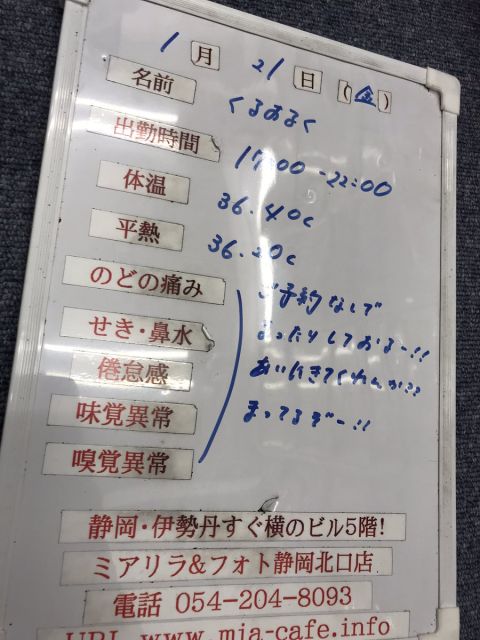 1月21日(金)
名前 くるみるく
出勤時間 17:00-22:00
体温 36.4℃
平熱 36.2℃
のどの痛み
せき・鼻水
倦怠感
味覚異常
嗅覚異常
ご予約なしで
まったりしておるー!!
あいにきてくれんか??
まってるぞー!!
静岡・伊勢丹すぐ横のビル5階!
ミアリラ&フォト静岡北口店
電話 054-204-8093
URL www.mia-cafe.info